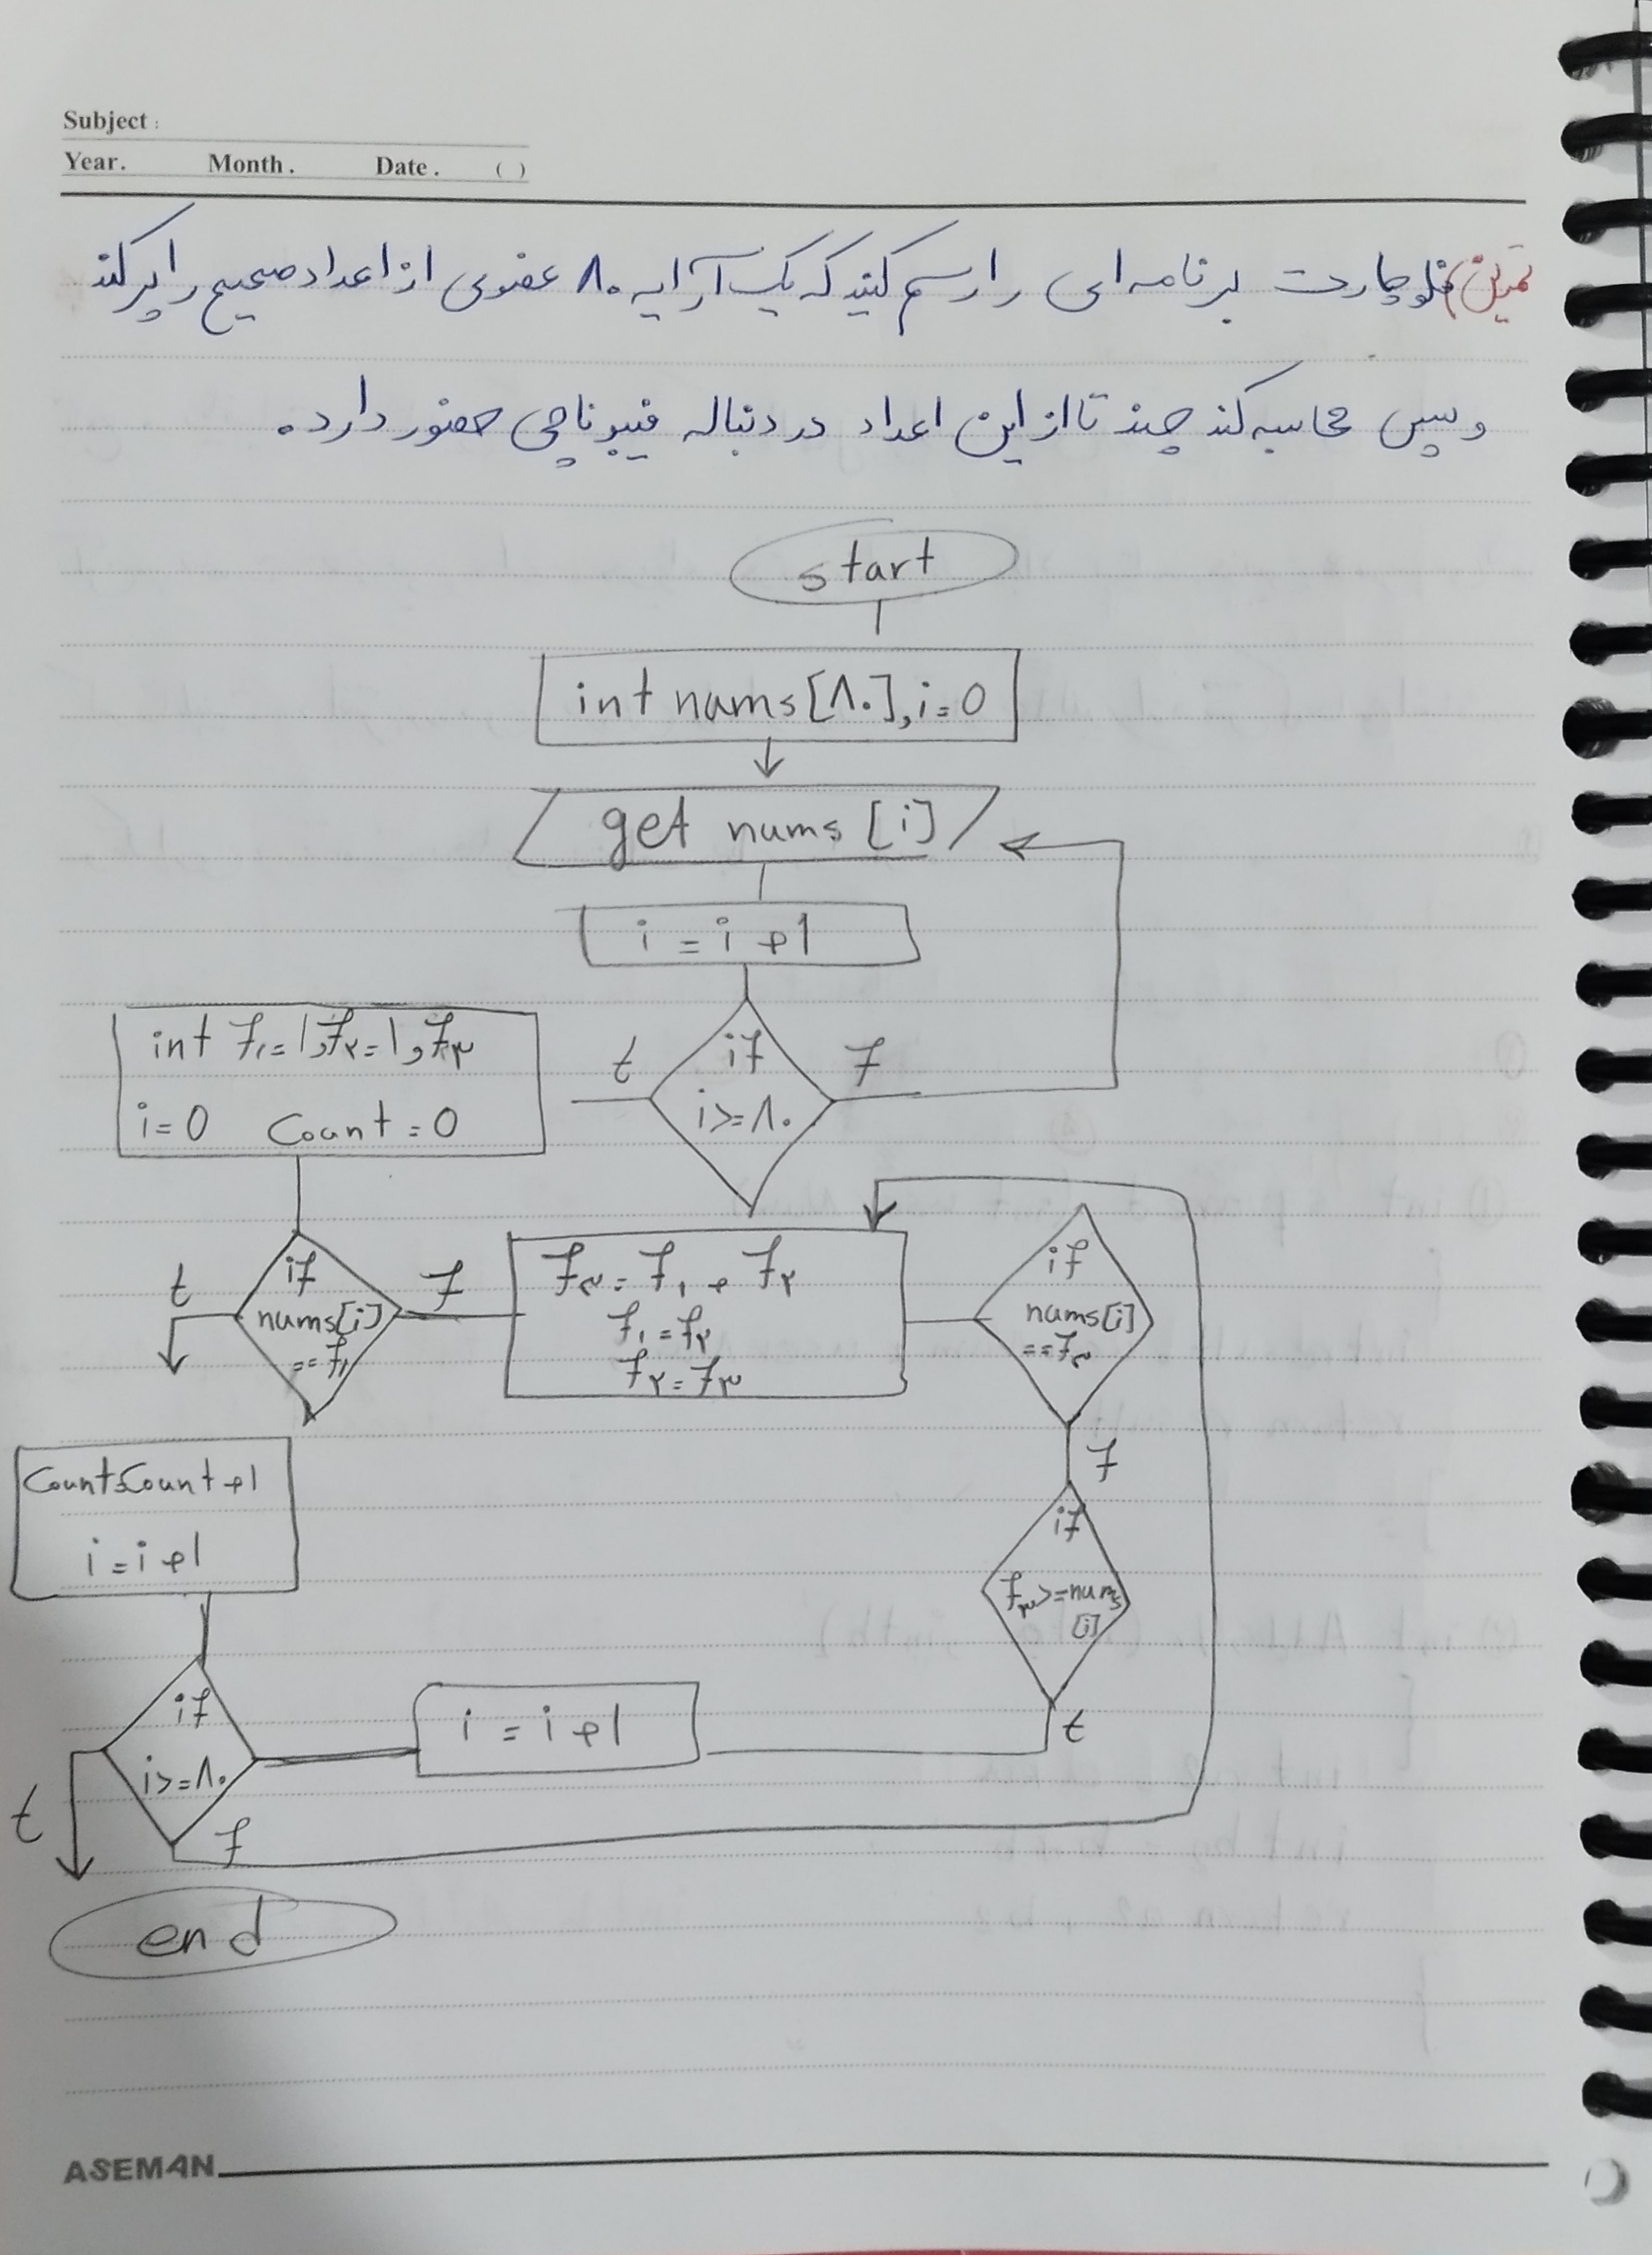 Subject :
Year. Month. Date. ( )
تمرین) فلوچارت برنامه ای را رسم کنید که یک آرایه ۸۰ عضوی از اعداد صحیح را پر کند
و سپس محاسبه کند چند تا از این اعداد در دنباله فیبوناچی حضور دارد.
start
int nums[۸۰], i=0
get nums [i]
i = i + 1
if
i>=۸۰
t
f
int f۱=1, f۲=1, f۳
i=0 Count=0
if
nums[i]
==f۱
t
f
f۳= f۱ + f۲
f۱=f۲
f۲=f۳
if
nums[i]
==f۳
f
if
f۳>=nums
[i]
t
Count=Count+1
i=i+1
i = i+1
if
i>=۸۰
t
f
end
ASEMAN